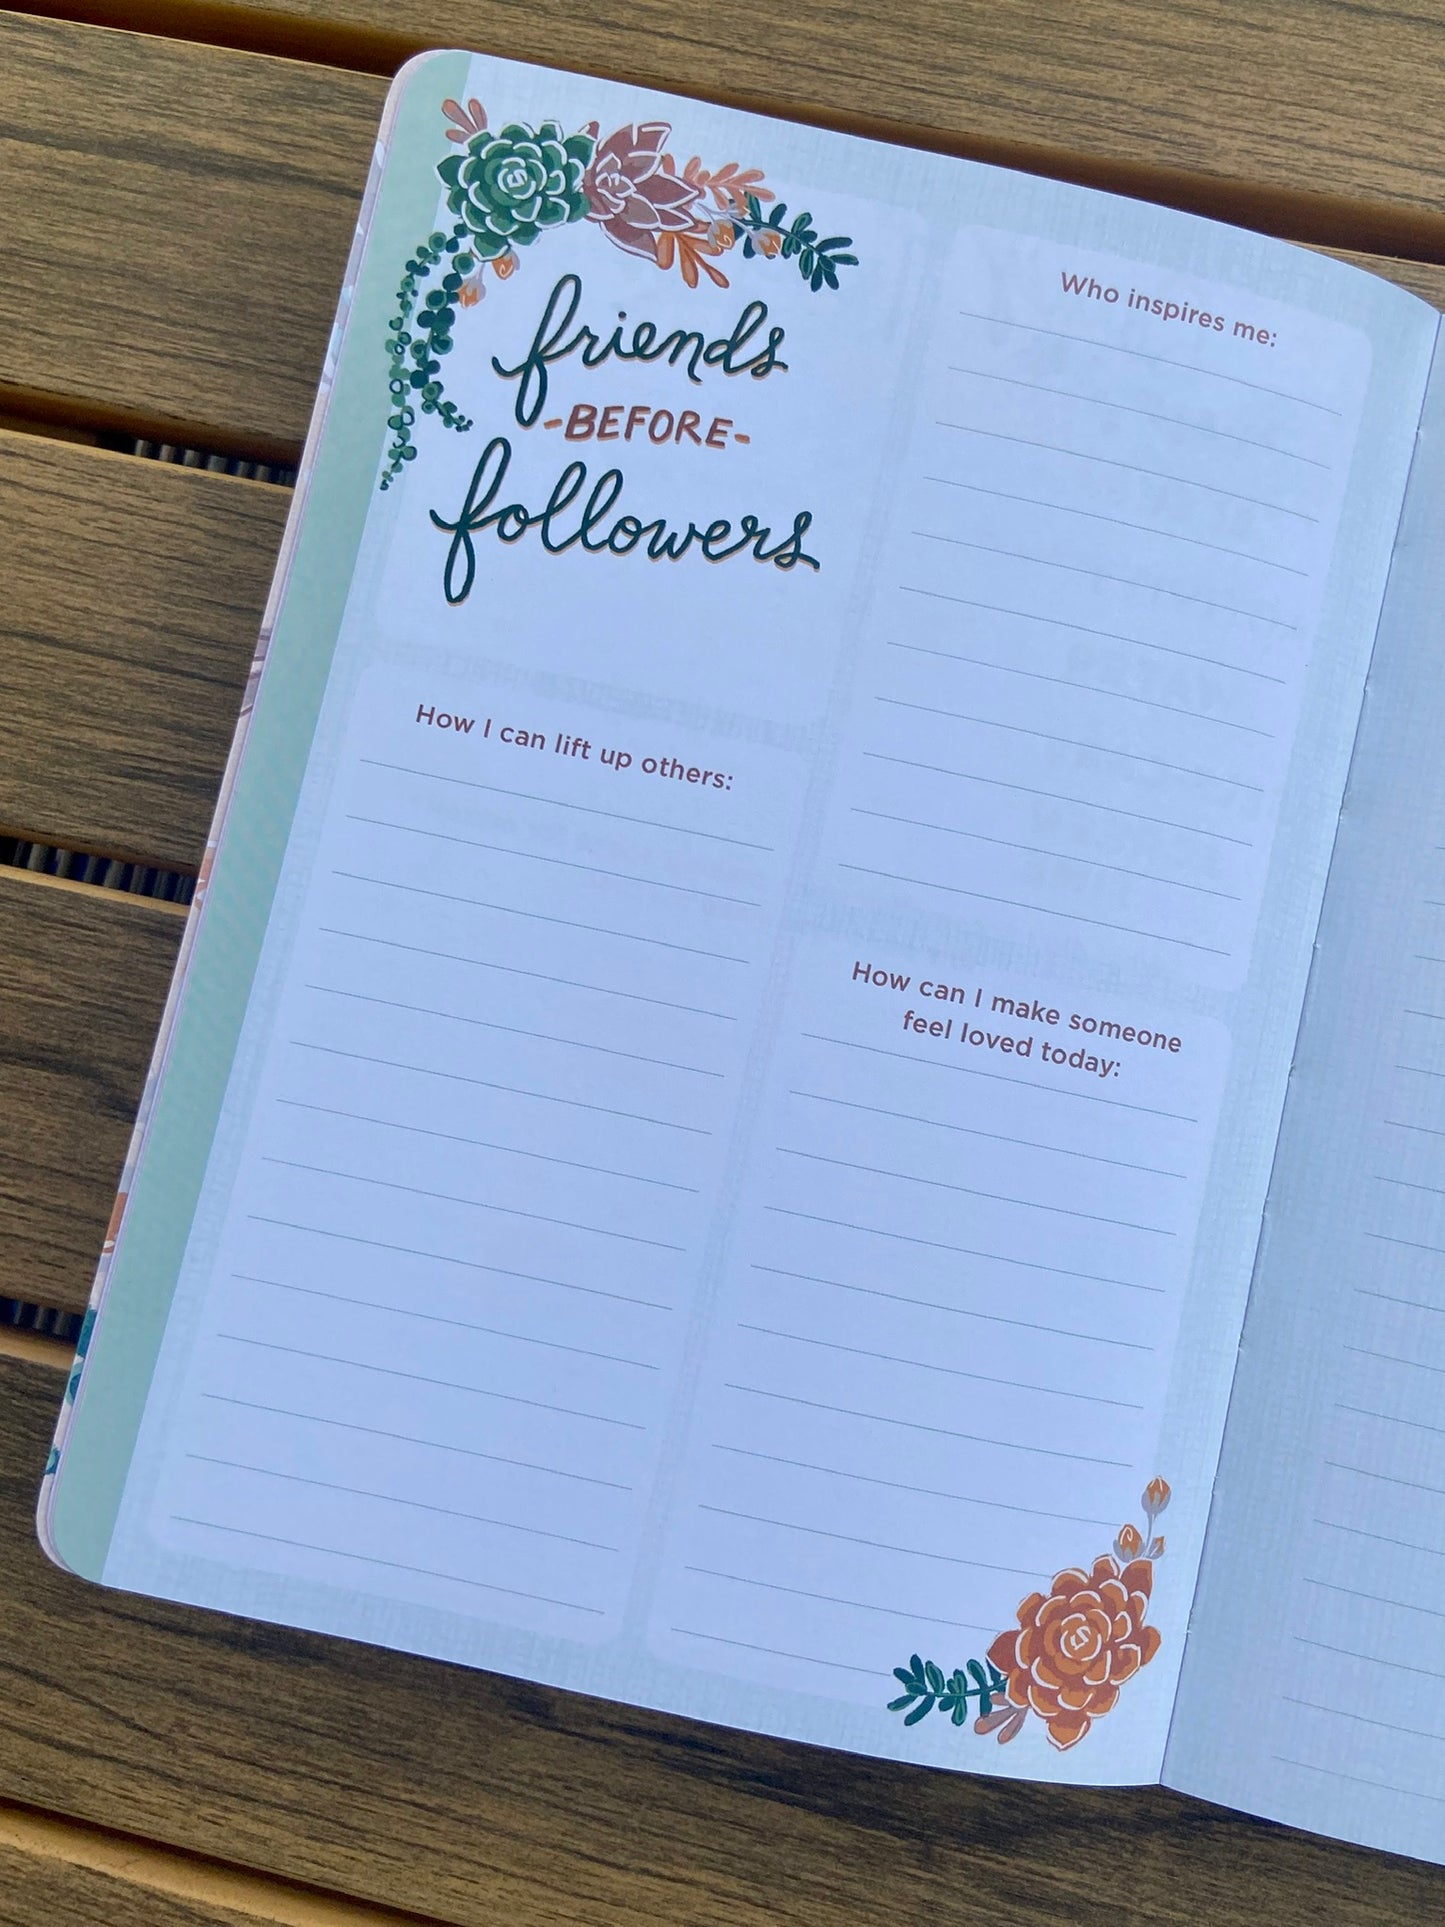 friends
-BEFORE-
followers
How I can lift up others:
Who inspires me:
How can I make someone
feel loved today: